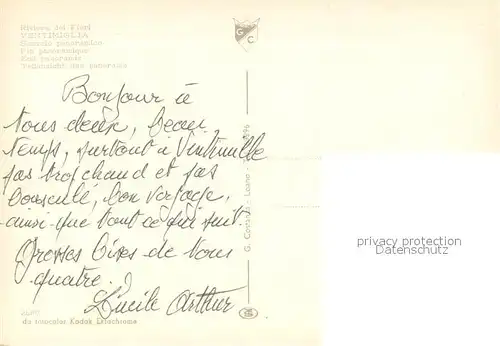 Riviera dei Fiori
VENTIMIGLIA
Scorcio panoramico
Vue panoramique
Teilansicht des panorama
G C
Bonjour à
tous deux, beau
temps, surtout à Vintimille
pas trop chaud et pas
bousculé, bon voyage,
ainsi que tout ce qui suit.
Grosses bises de tous
quatre.
Lucile Arthur
da transcolor Kodak Ektachrome
privacy protection watermark
automatically added